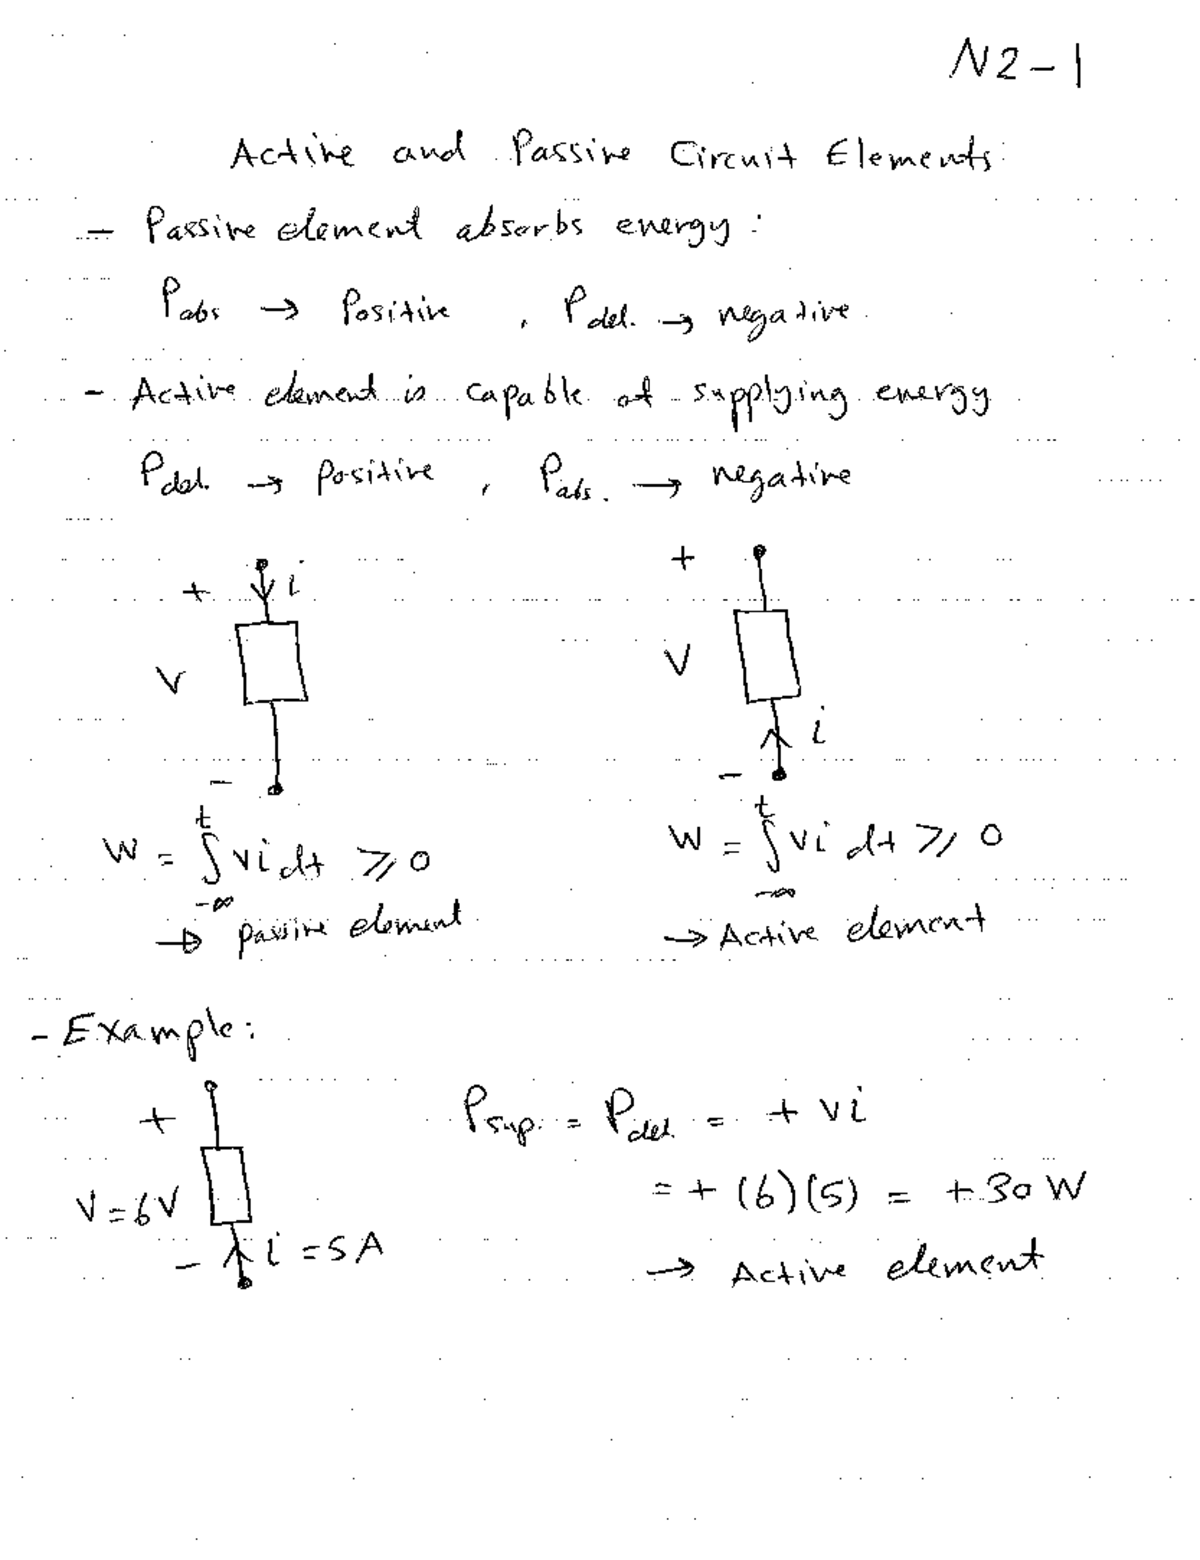 N2-1
Active and Passive Circuit Elements:
- Passive element absorbs energy:
Pabs → Positive , Pdel. → negative.
- Active element is capable of supplying energy
Pdel. → Positive , Pabs. → negative
+ i
V
-
W = ∫ vi dt ⩾ 0
t
-∞
→ passive element
+
V
i
-
W = ∫ vi dt ⩾ 0
t
-∞
→ Active element
- Example:
+
V=6V
- i=5A
Psup. = Pdel. = + vi
= + (6)(5) = +30 W
→ Active element